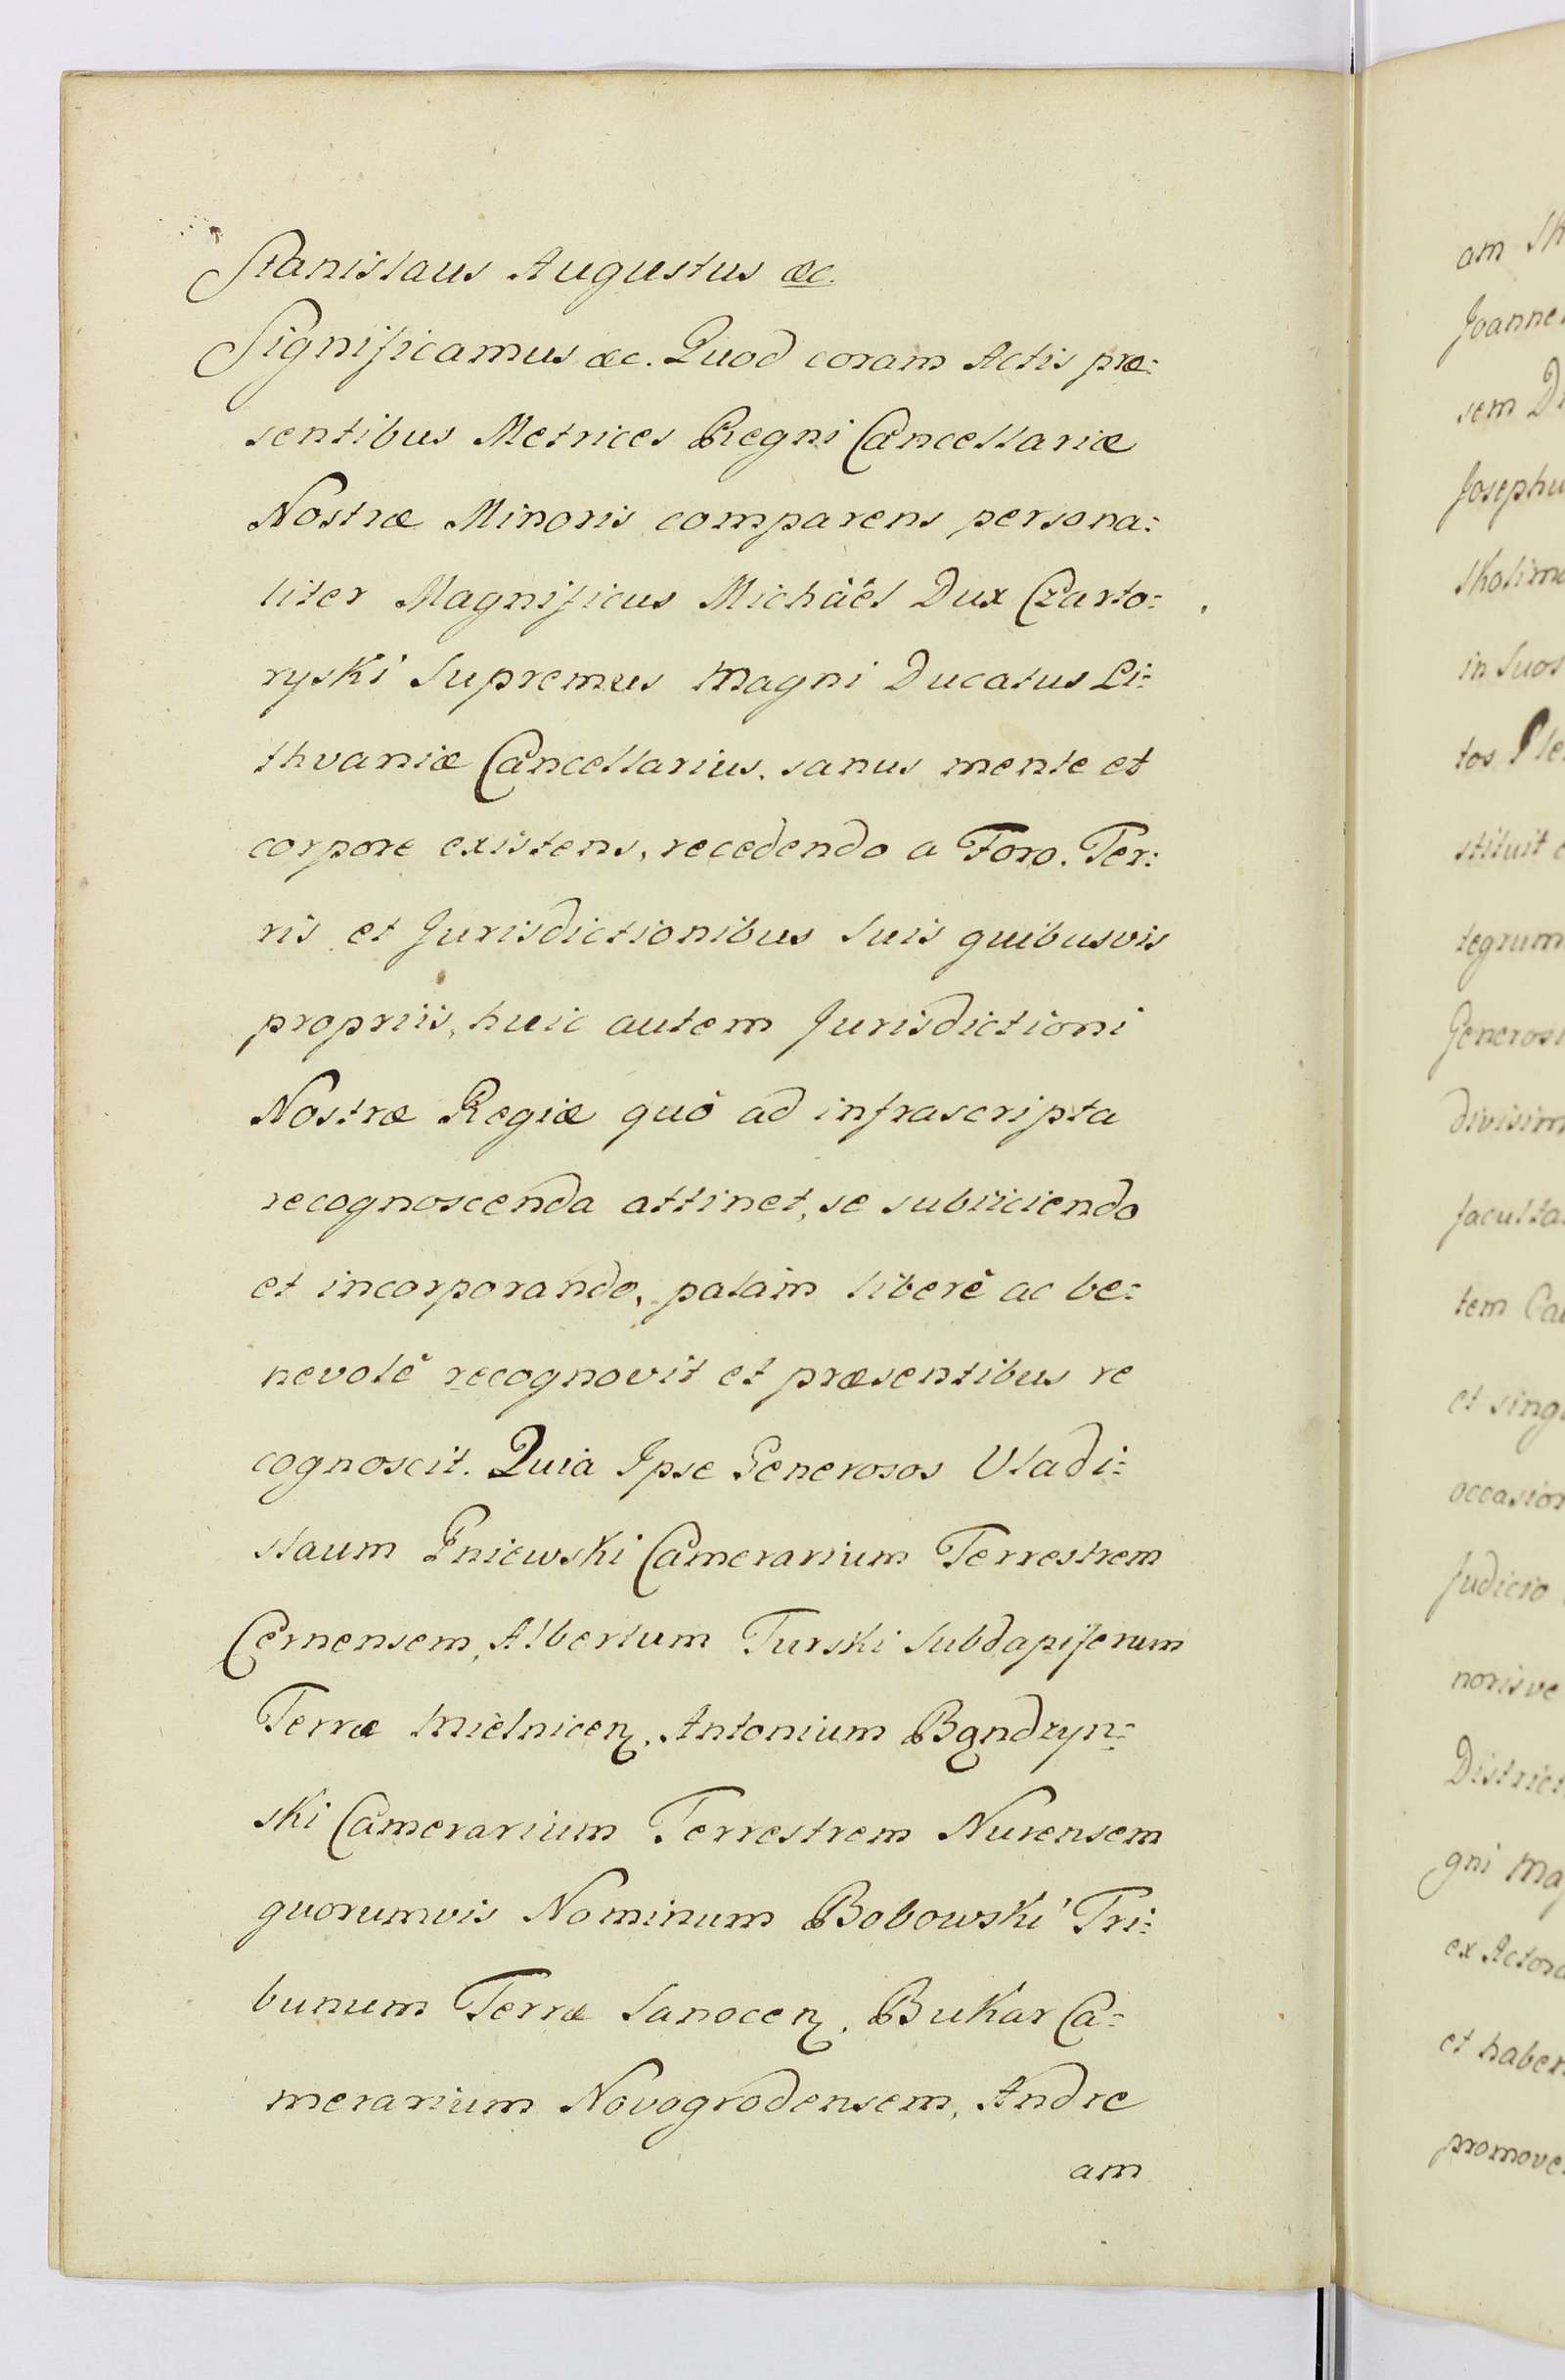 Stanislaus Augustus &c.
Significamus &c. Quod coram Actis præ:
sentibus Metrices Regni Cancellariæ
Nostræ Minoris comparens persona:
liter Magnificus Michäél Dux Czarto:
ryski Supremus Magni Ducatus Li:
thvaniæ Cancellarius, sanus mente et
corpore existens, recedendo a Foro. Ter:
ris et Jurisdictionibus Suis quibusvis
propriis, huic autem Jurisdictioni
Nostræ Regiæ quô ad infrascripta
recognoscenda attinet, se subiiciendo
et incorporando, palàm liberè ac be:
nevolè recognovit et præsentibus re
cognoscit. Quia Ipse Generosos Vladi:
slaum Gniewski Camerarium Terrestrem
Cernensem, Albertum Turski Subdapiferum
Terræ Mielnicen. Antonium Bądzyn:
ski Camerarium Terrestrem Nurensem
quorumvis Nominum Bobowski Tri:
bunum Terræ Sanocen. Bukar Ca:
merarium Novogrodensem, Andre
am
am
Joanne
sem
Josephu
Skolim
in Suos
tos
stituit
tegrum
Generosi
divisim
faculta
tem
et sing
occasion
Judicio
norisve
District
gni
ex Actor
et haber
promove